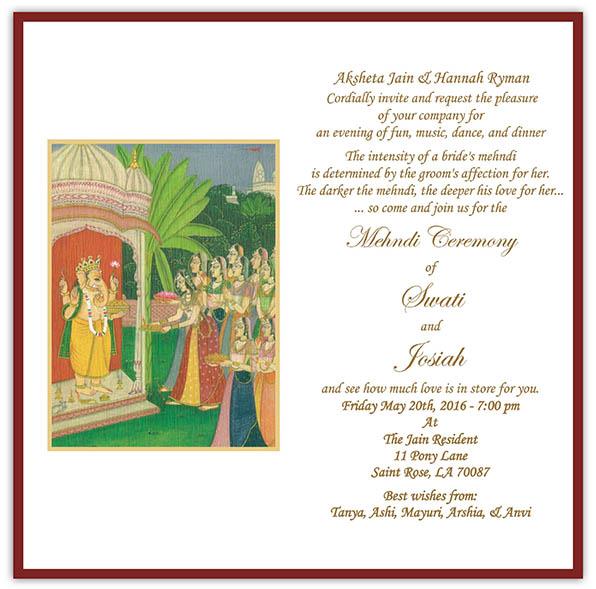 Aksheta Jain & Hannah Ryman
Cordially invite and request the pleasure
of your company for
an evening of fun, music, dance, and dinner
The intensity of a bride's mehndi
is determined by the groom's affection for her.
The darker the mehndi, the deeper his love for her...
... so come and join us for the
Mehndi Ceremony
of
Swati
and
Josiah
and see how much love is in store for you.
Friday May 20th, 2016 - 7:00 pm
At
The Jain Resident
11 Pony Lane
Saint Rose, LA 70087
Best wishes from:
Tanya, Ashi, Mayuri, Arshia, & Anvi